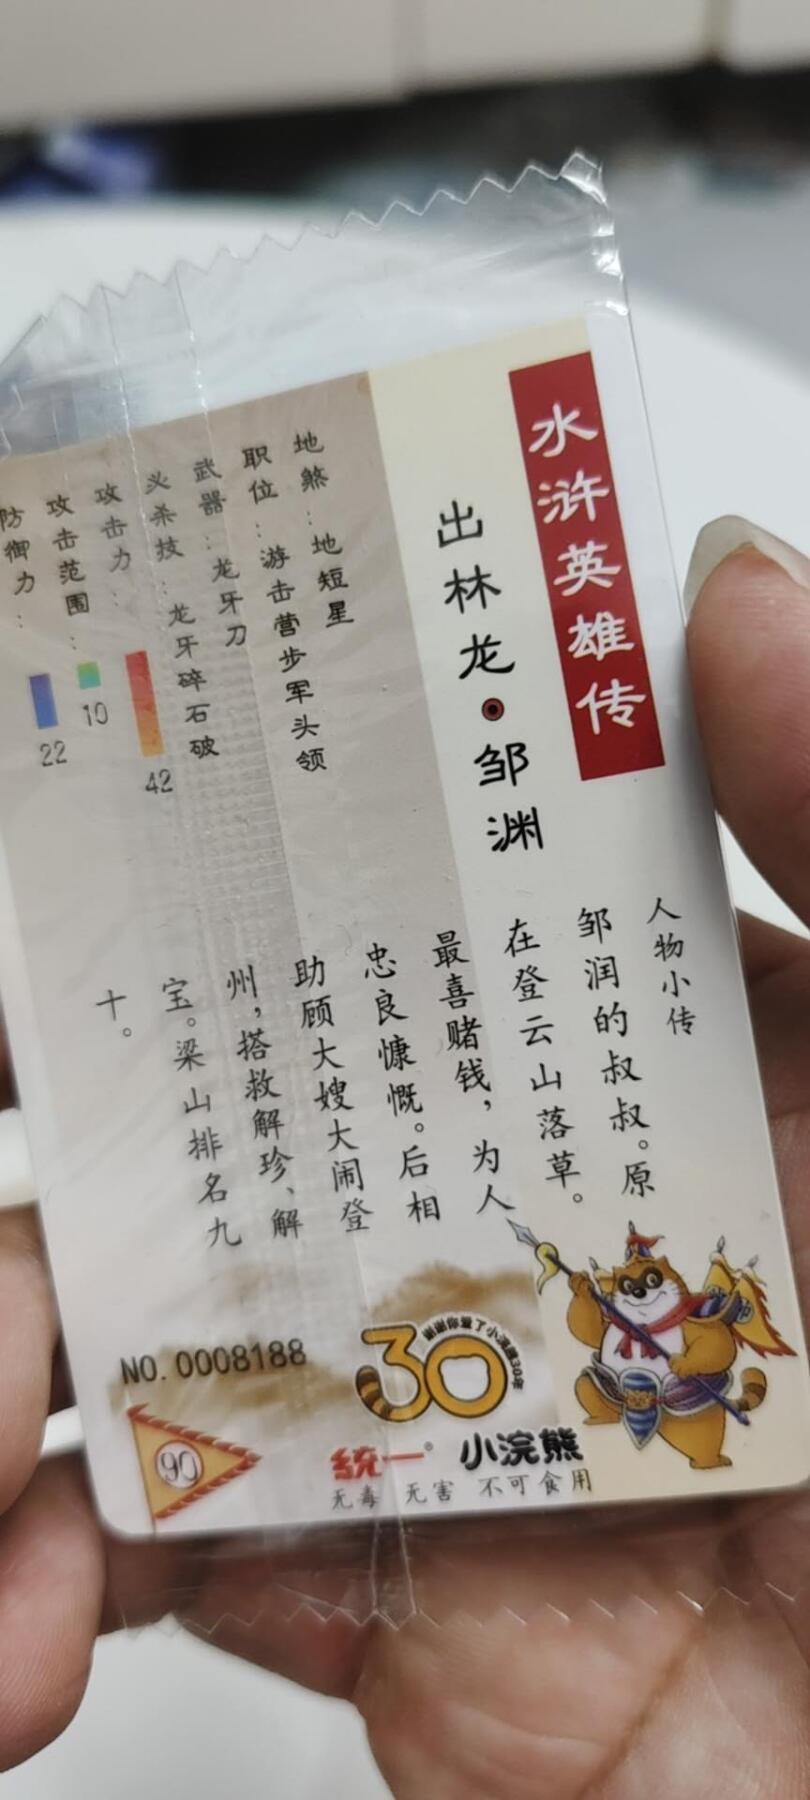 水浒英雄传
出林龙·邹渊
地煞：地短星
职位：游击营步军头领
武器：龙牙刀
必杀技：龙牙碎石破
攻击力：
42
攻击范围：
10
防御力：
22
人物小传
邹润的叔叔。原
在登云山落草。
最喜赌钱，为人
忠良慷慨。后相
助顾大嫂大闹登
州，搭救解珍、解
宝。梁山排名九
十。
NO.0008188
90
谢谢你爱了小浣熊30年
30
统一 小浣熊
无毒 无害 不可食用